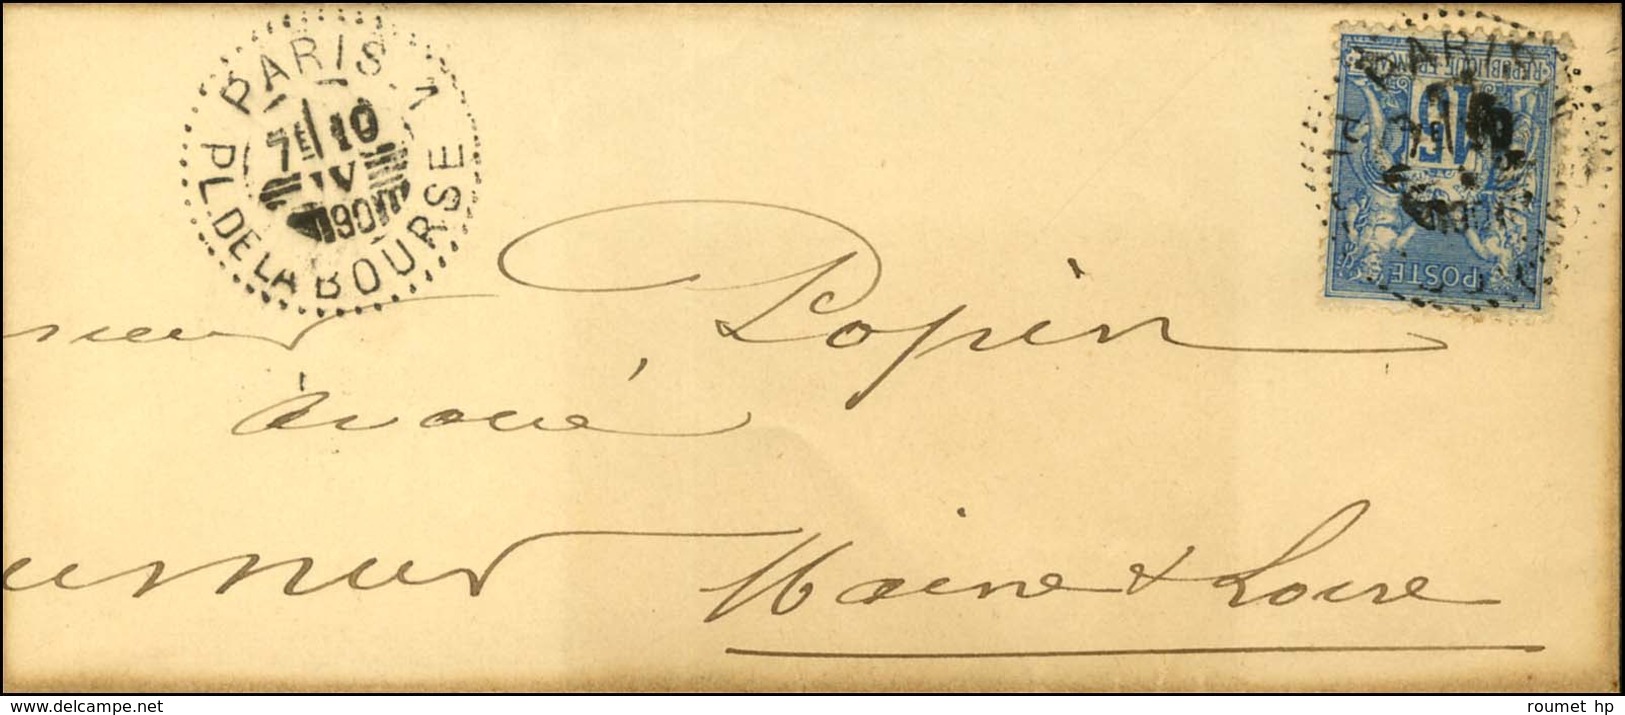 PARIS 1
7E 10
IV
PL. DE LA BOURSE
REPUBLIQUE FRANCAISE
15
POSTE
PARIS
sieur Popin
avoué
aumur Maine & Loire
www.delcampe.net
roumet hp